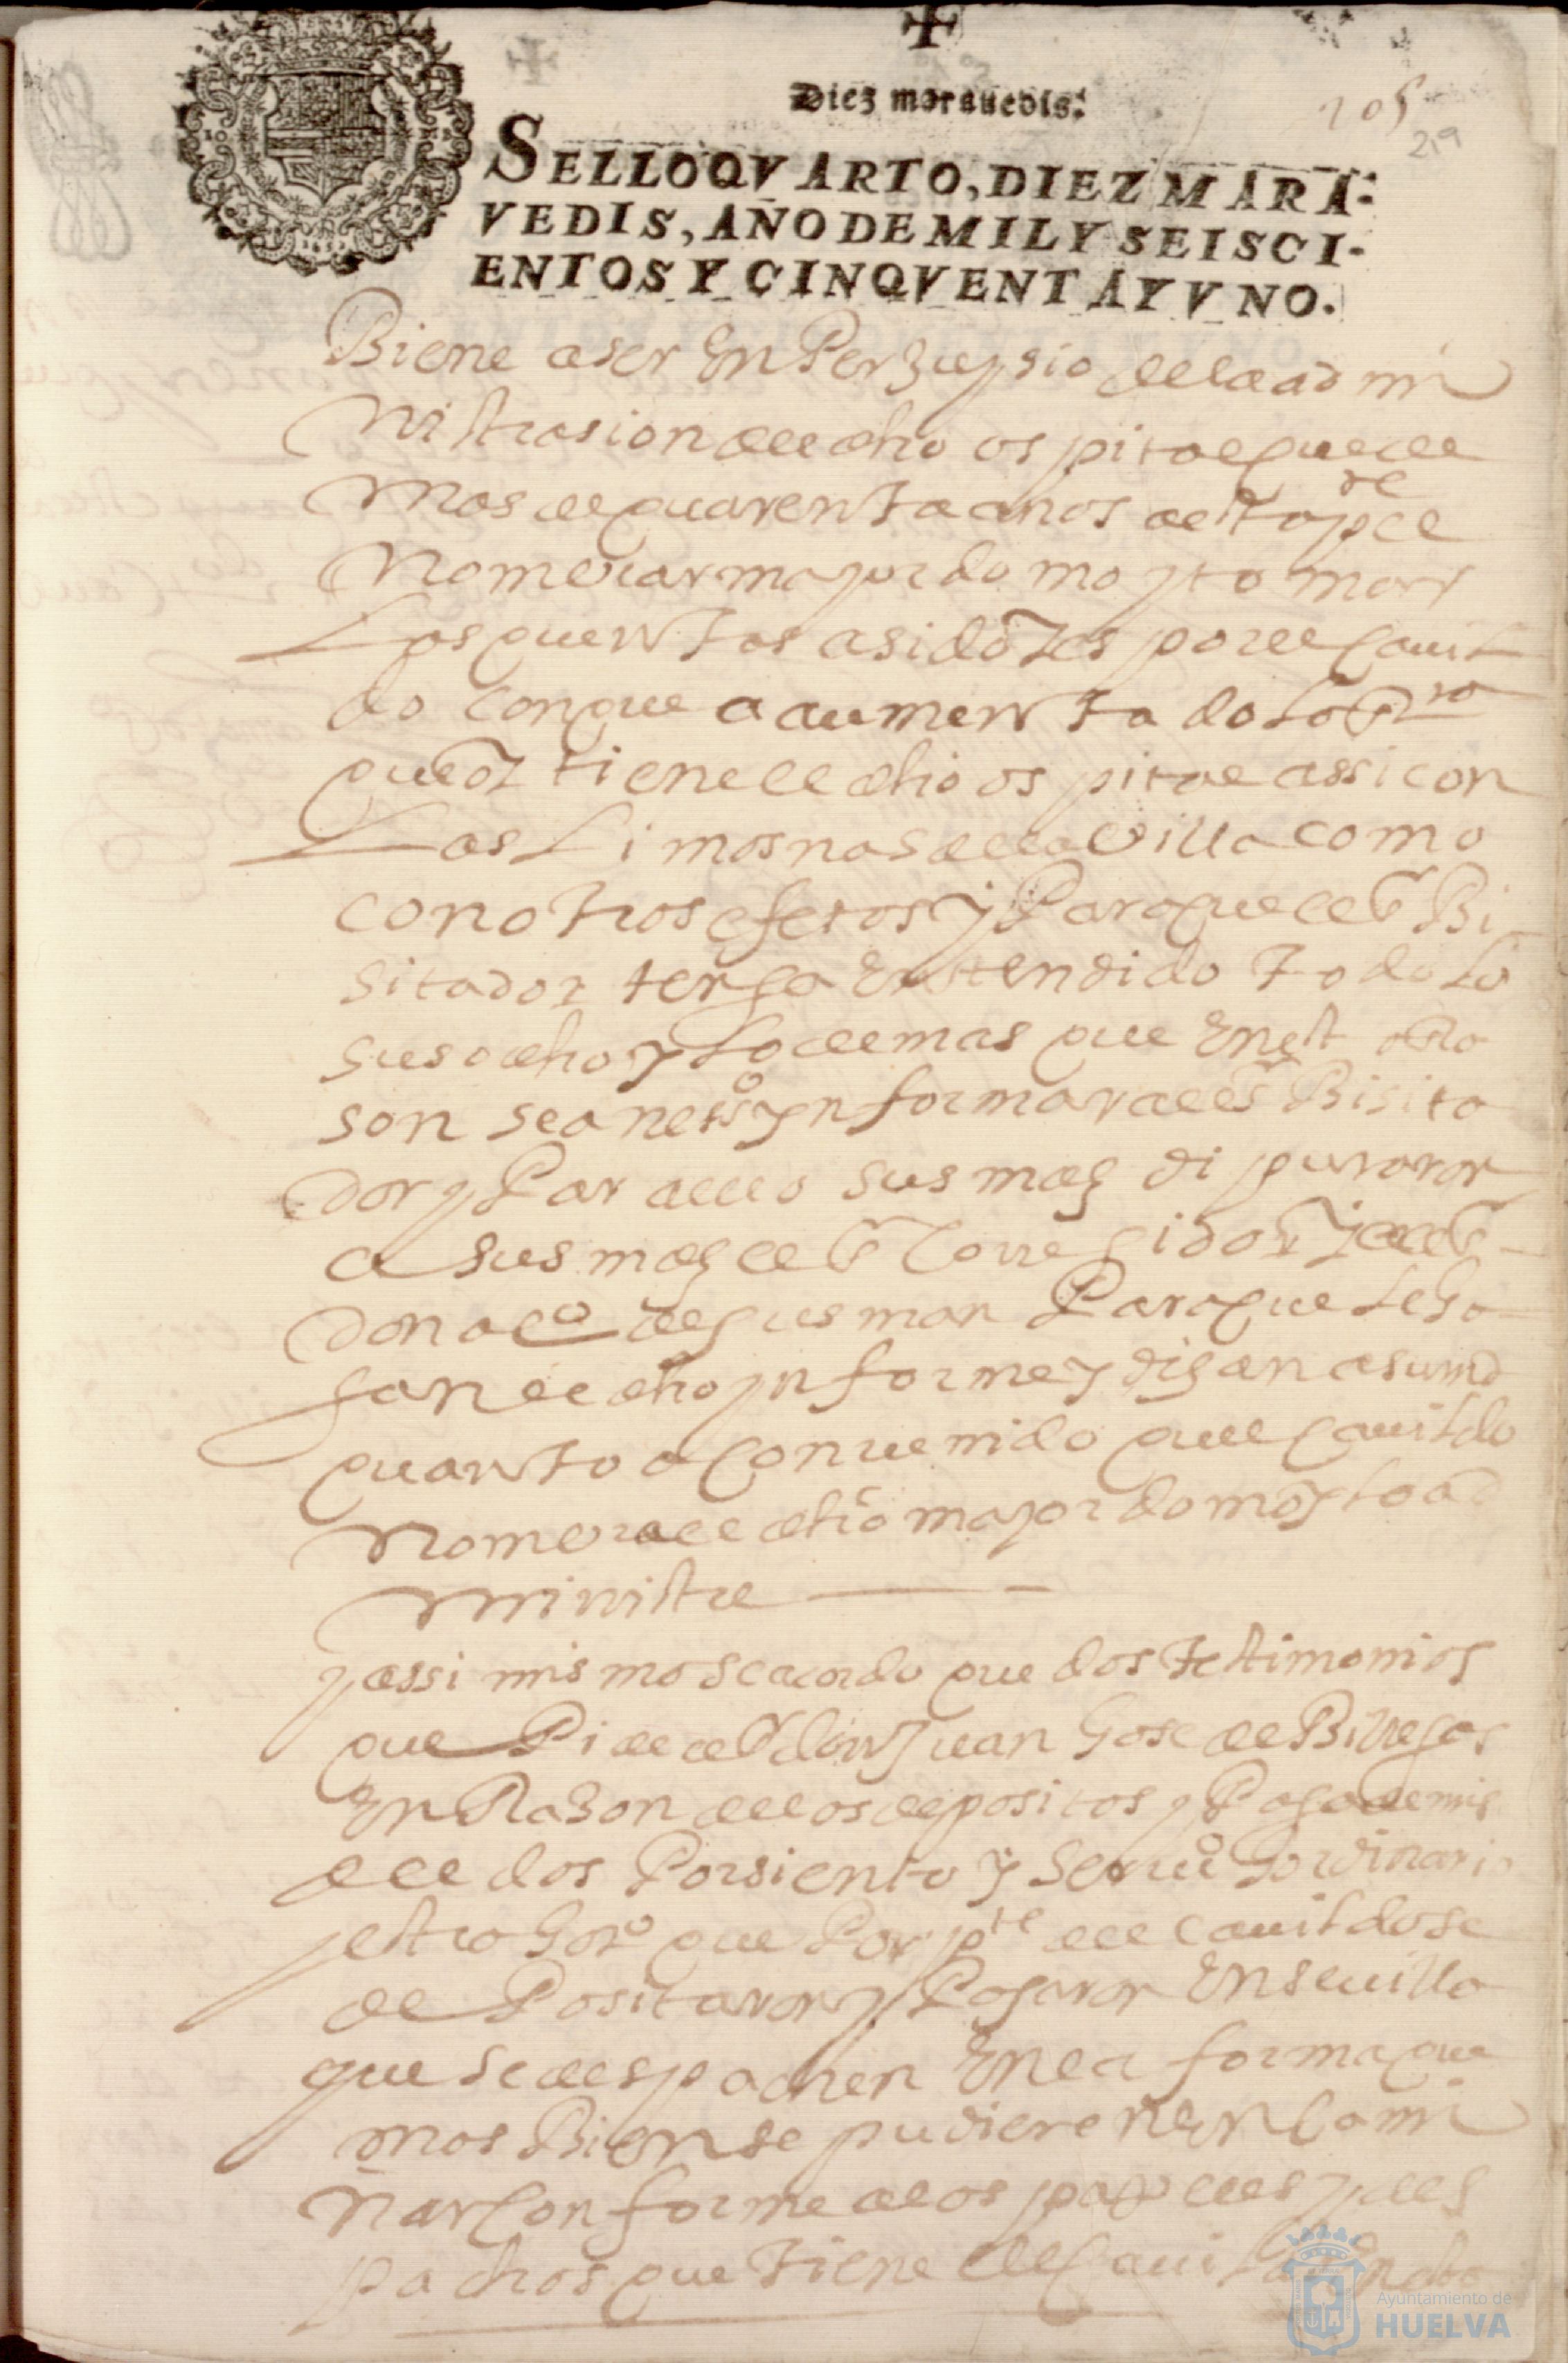 Diez marauedis.
105
219
SELLO QVARTO, DIEZ MARA-
VEDIS, AÑO DE MIL Y SEISCI-
ENTOS Y CINQVENTA Y VNO.
Biene a ser En Perzuysio de la ad mi
nistrasion del dho ospital que de
mas de quarenta años a esta pte
Nombrar mayordomo y tomar
Las quentas a sido es por el cauil
do con que a aumentado lo
que oy tiene el dho ospital assi con
Las Limosnas de la Villa como
con otros efetos y Para que el Sr Bi
sitador tenga Entendido todo Lo
susodho y Lo demas que En esta
son sea nesso ynformar al Sr Bisita
dor y Par a ello sus mds diputaron
a sus mds el Sr Corregidor y al Sr
don alo de gusman Para que le ha
gan el dho ynforme y digan a su md
quanto a conuenido que cauildo
Nombra el dho mayordomo y lo ad
ministre
y assi mismo se acordo que dos testimonios
que Pide el Sr don Juan Gose de Billegas
En Rason de los depositos y Paga de mis
del dos Porsiento y seruio hordinario
y estrahoro que Por pte del cauildo se
de Positaron y Pagaron En seuilla
que se despachen En la forma que
mas Bien se pudieren En Cami
ñar Conforme a los papeles y des
pachos que tiene el Cauildo
Ayuntamiento de
HUELVA